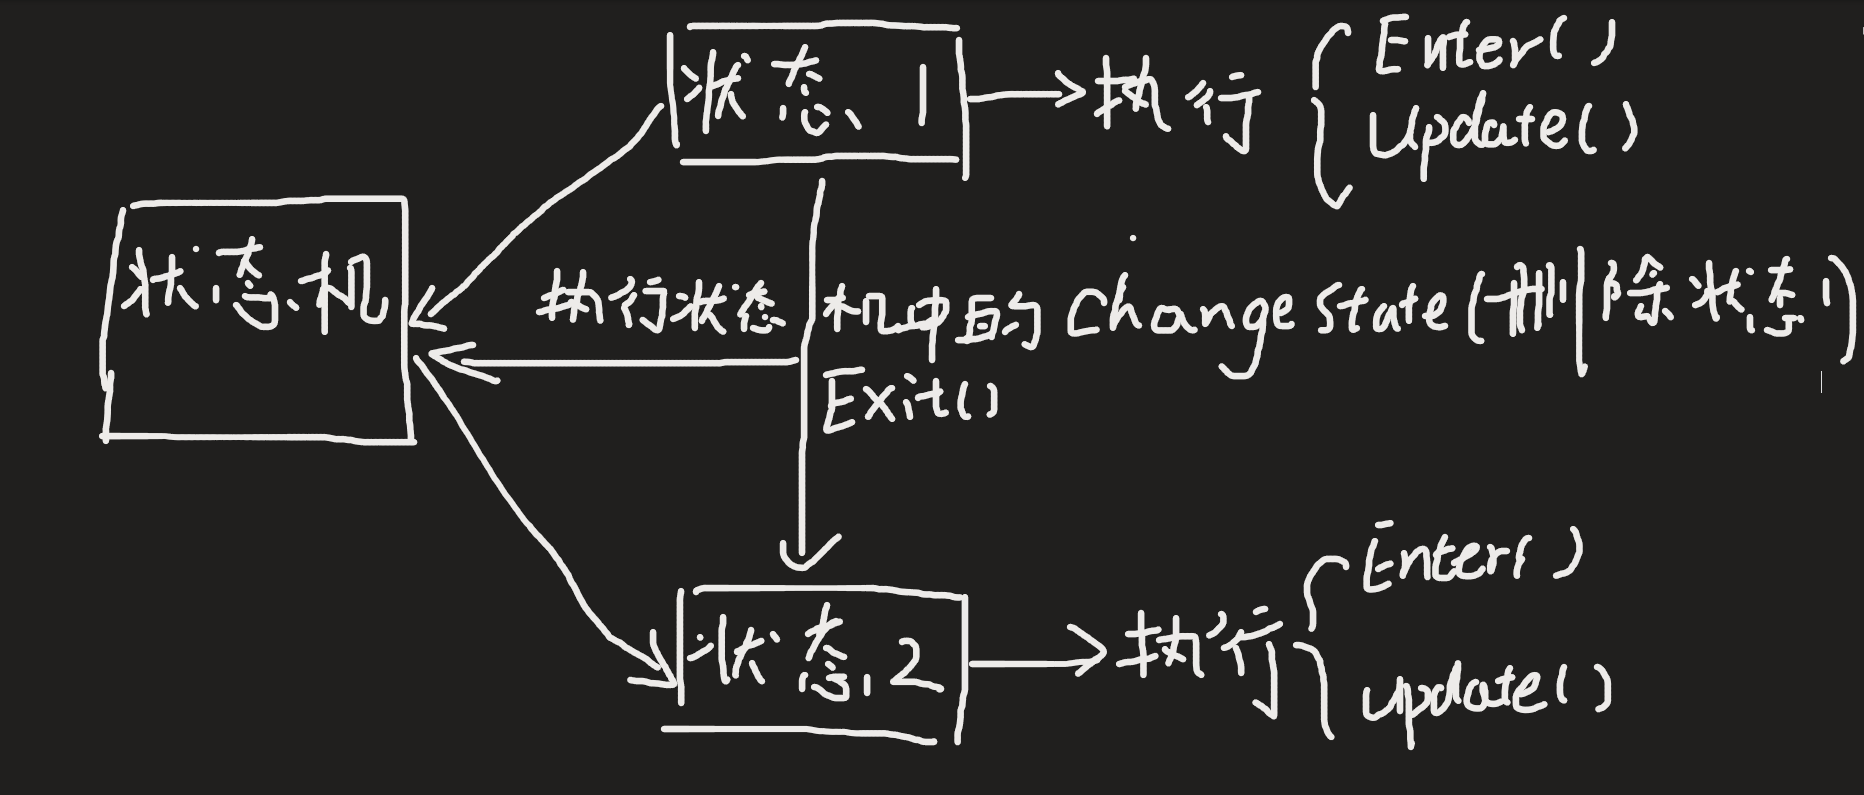 状态1
执行
Enter()
Update()
状态机
执行状态机中的Change State(删除状态1)
Exit()
状态2
执行
Enter()
update()